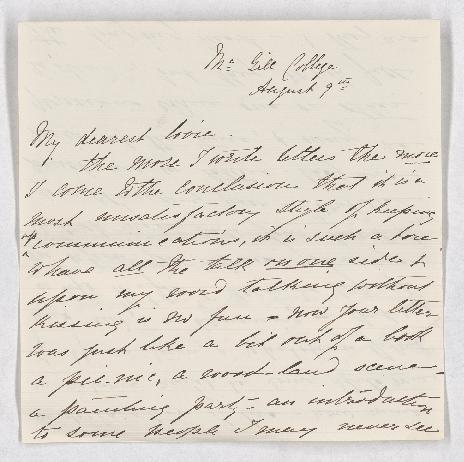 Mc Gill College
August 9th
My dearest love.
the more I write letters the more
I come to the conclusion that it is a
most unsatisfactory style of keeping
up communications, it is such a bore
to have all the talk on one side &
upon my word talking without
kissing is no fun - now your letter
was just like a bit out of a book
a pic-nic, a wood-land scene -
a painting party - an introduction
to some people I may never see